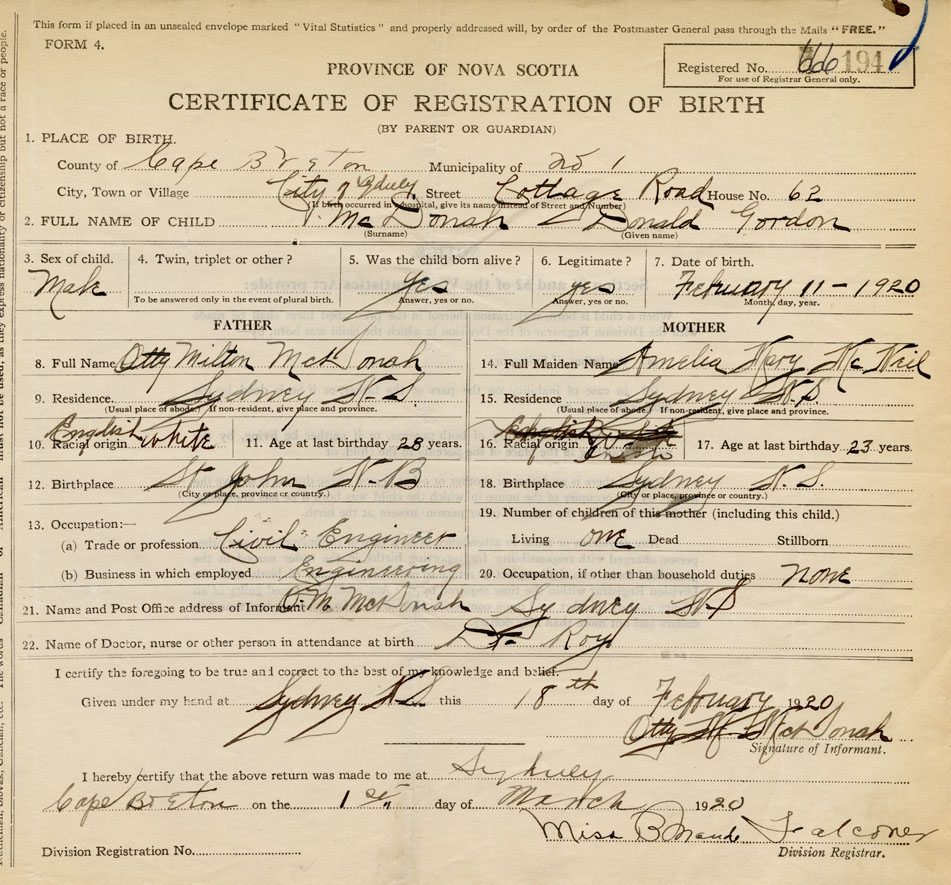 This form if placed in an unsealed envelope marked "Vital Statistics" and properly addressed will, by order of the Postmaster General pass through the Mails "FREE."
FORM 4.
PROVINCE OF NOVA SCOTIA
Registered No. 194
For use of Registrar General only.
CERTIFICATE OF REGISTRATION OF BIRTH
(BY PARENT OR GUARDIAN)
1. PLACE OF BIRTH.
County of Cape Breton Municipality of No 1
City, Town or Village City of Sydney Street Cottage Road House No. 62
(If birth occurred in a hospital, give its name instead of Street and Number)
2. FULL NAME OF CHILD McDonah Donald Gordon
(Surname) (Given name)
3. Sex of child. 4. Twin, triplet or other? 5. Was the child born alive? 6. Legitimate? 7. Date of birth.
Male yes yes February 11-1920
To be answered only in the event of plural birth. Answer, yes or no. Answer, yes or no. Month, day, year.
FATHER MOTHER
8. Full Name Otty Milton McDonah 14. Full Maiden Name Amelia Mary McNeil
9. Residence. Sydney N.S. 15. Residence Sydney N.S.
(Usual place of abode.) If non-resident, give place and province. (Usual place of abode.) If non-resident, give place and province.
English
10. Racial origin white 11. Age at last birthday 28 years. 16. Racial origin 17. Age at last birthday 23 years.
12. Birthplace St. John N.B 18. Birthplace Sydney N.S.
(City or place, province or country.) (City or place, province or country.)
13. Occupation:— 19. Number of children of this mother (including this child.)
(a) Trade or profession Civil Engineer Living one Dead Stillborn
(b) Business in which employed Engineering 20. Occupation, if other than household duties none
21. Name and Post Office address of Informant O.M. McDonah Sydney N.S
22. Name of Doctor, nurse or other person in attendance at birth Dr. Roy
I certify the foregoing to be true and correct to the best of my knowledge and belief.
Given under my hand at Sydney N.S. this 18th day of February 1920
Otty M McDonah
Signature of Informant.
I hereby certify that the above return was made to me at Sydney
Cape Breton on the 1st day of March 1920
Miss B Maude Falconer
Division Registration No. Division Registrar.